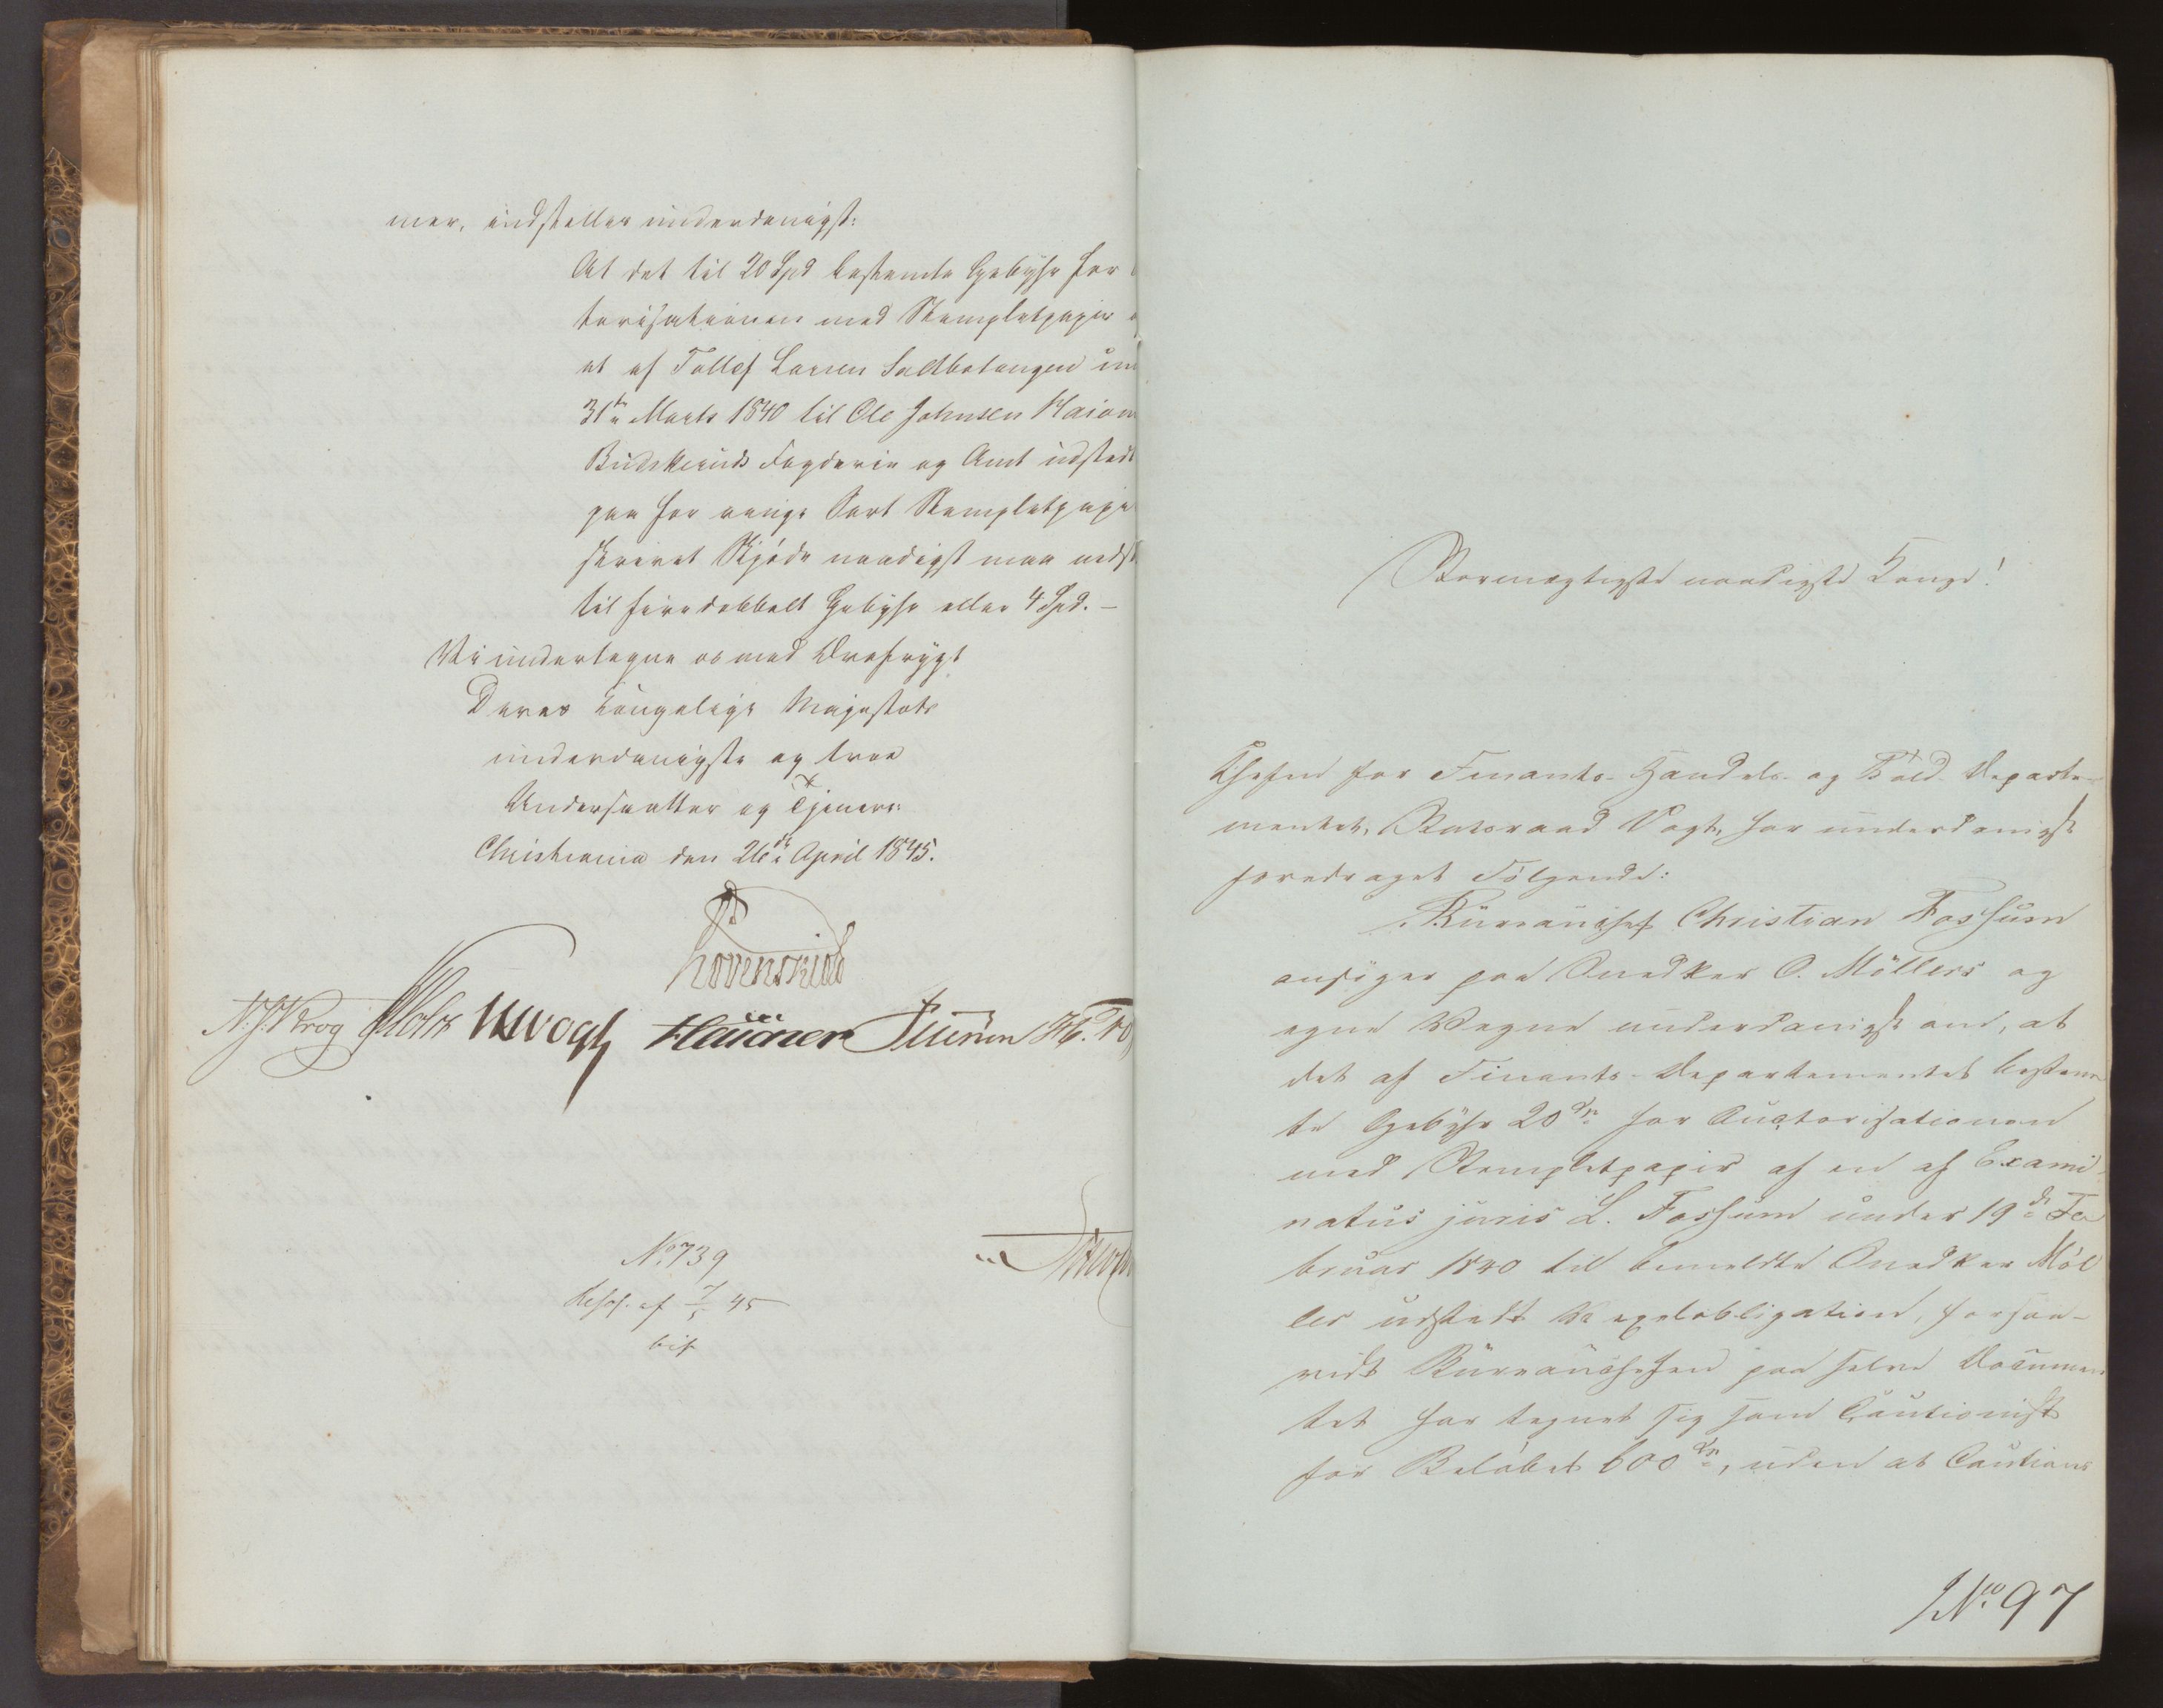 mer, indstilles underdanigst:
At det til 20 Spd bestemte Gebyhr for
torisationen med Stempletpapir
et af Tollef Larsen Saltbotangen un
31te Marts 1840 til Ole Johnsen Maion
Buskeruds Fogderie og Amt udstedt
paa for ringe Sort Stempletpapi
skrevet Skjøde naadigst maa neds
til firedobbelt Gebyhr eller 4 Spd. –
Vi undertegne os med Ærefrygt
Deres Kongelige Majestæts
underdanigste og troe
Undersaatter og Tjenere:
Christiania den 26de April 1845.
Løvenskiold
N. J. Krog Holst JHVogt Heidner Fürum
No 739
Resol. af 7/5 45
bif.
Stormægtigste naadigste Konge!
Chefen for Finants- Handels- og Told-Departe-
mentet, Statsraad Vogt, har underdanigst
foredraget Følgende:
"Bureauchef Christian Fossum
ansøger paa Snedker O. Møllers og
egne Vegne underdanigst om, at
det af Finants-Departementet bestem
te Gebyhr 20 Spd for Auctorisationen
med Stempletpapir af en af Exami-
natus juris L. Fossum under 19de Fe
bruar 1840 til bemeldte Snedker Møl
ler udstedt Vexelobligation, forsaa-
vidt Bureauchefen paa selve Documen
tet har tegnet sig som Cautionist
for Beløbet 600 Spd, uden at Cautions
No 97